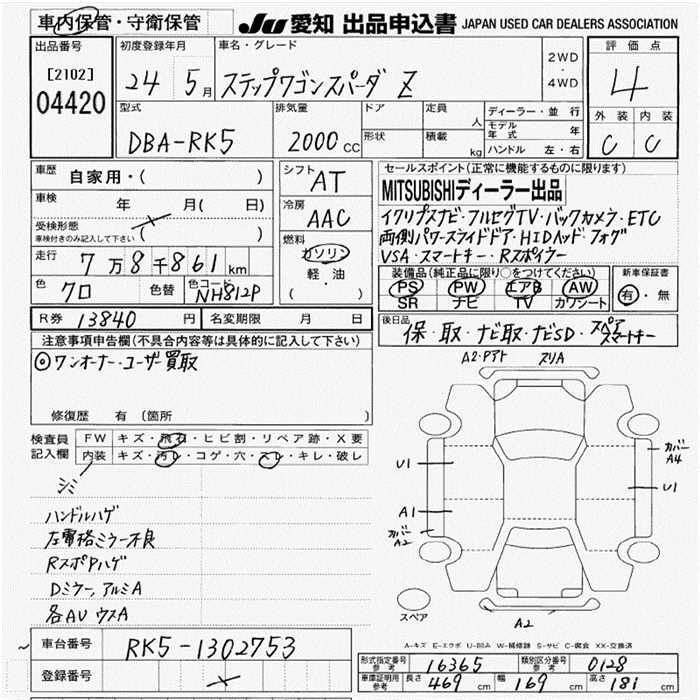 車内保管・守衛保管
JU 愛知 出品申込書 JAPAN USED CAR DEALERS ASSOCIATION
出品番号
[2102]
04420
初度登録年月
24 5月
車名・グレード
ステップワゴンスパーダ Z
2WD
・
4WD
評価点
4
外装 内装
C C
型式
DBA-RK5
排気量
2000 CC
ドア
形状
定員 人
積載 kg
ディーラー・並行
モデル年式 年
ハンドル 左・右
車歴
自家用・( )
車検 年 月( 日)
受検形態
車検付きのみ記入して下さい ( )
走行
7万8千861km
色
クロ
色替
色コード
NH812P
シフト
AT
冷房
AAC
燃料
ガソリン
軽・油
( )
セールスポイント(正常に機能するものに限ります)
MITSUBISHIディーラー出品
イクリプスナビ・フルセグTV・バックカメラ・ETC
両側パワースライドドア・HIDヘッド・フォグ
VSA・スマートキー・Rスポイラー
装備品(純正品に限り○をつけてください)
PS PW エアB AW
SR ナビ TV カワシート
新車保証書
有・無
R券 13840 円 名変期限 月 日
後日品
保・取・ナビ取・ナビSD・スペアスマートキー
注意事項申告欄(不具合内容等は具体的に記入して下さい)
◎ワンオーナー・ユーザー買取
修復歴 有 (箇所
検査員
記入欄
FW キズ・飛石・ヒビ割・リペア跡・X要
内装 キズ・汚レ・コゲ・穴・スレ・キレ・破レ
シミ
ハンドルハゲ
左電格ミラー不良
RスポPハゲ
Dミラー,アルミA
各AUウスA
A2・Pアト スリA
カバーA4
U1
U1
A1
カバーA2
スペア
A2
A-キズ E-エクボ U-凹み W-補修跡 S-サビ C-腐食 XX-交換済
車台番号 RK5-1302753
登録番号
形式指定番号 参考 16365 類別区分番号 参考 0128
車庫証明用 参考 長さ 469 cm 幅 169 cm 高さ 181 cm